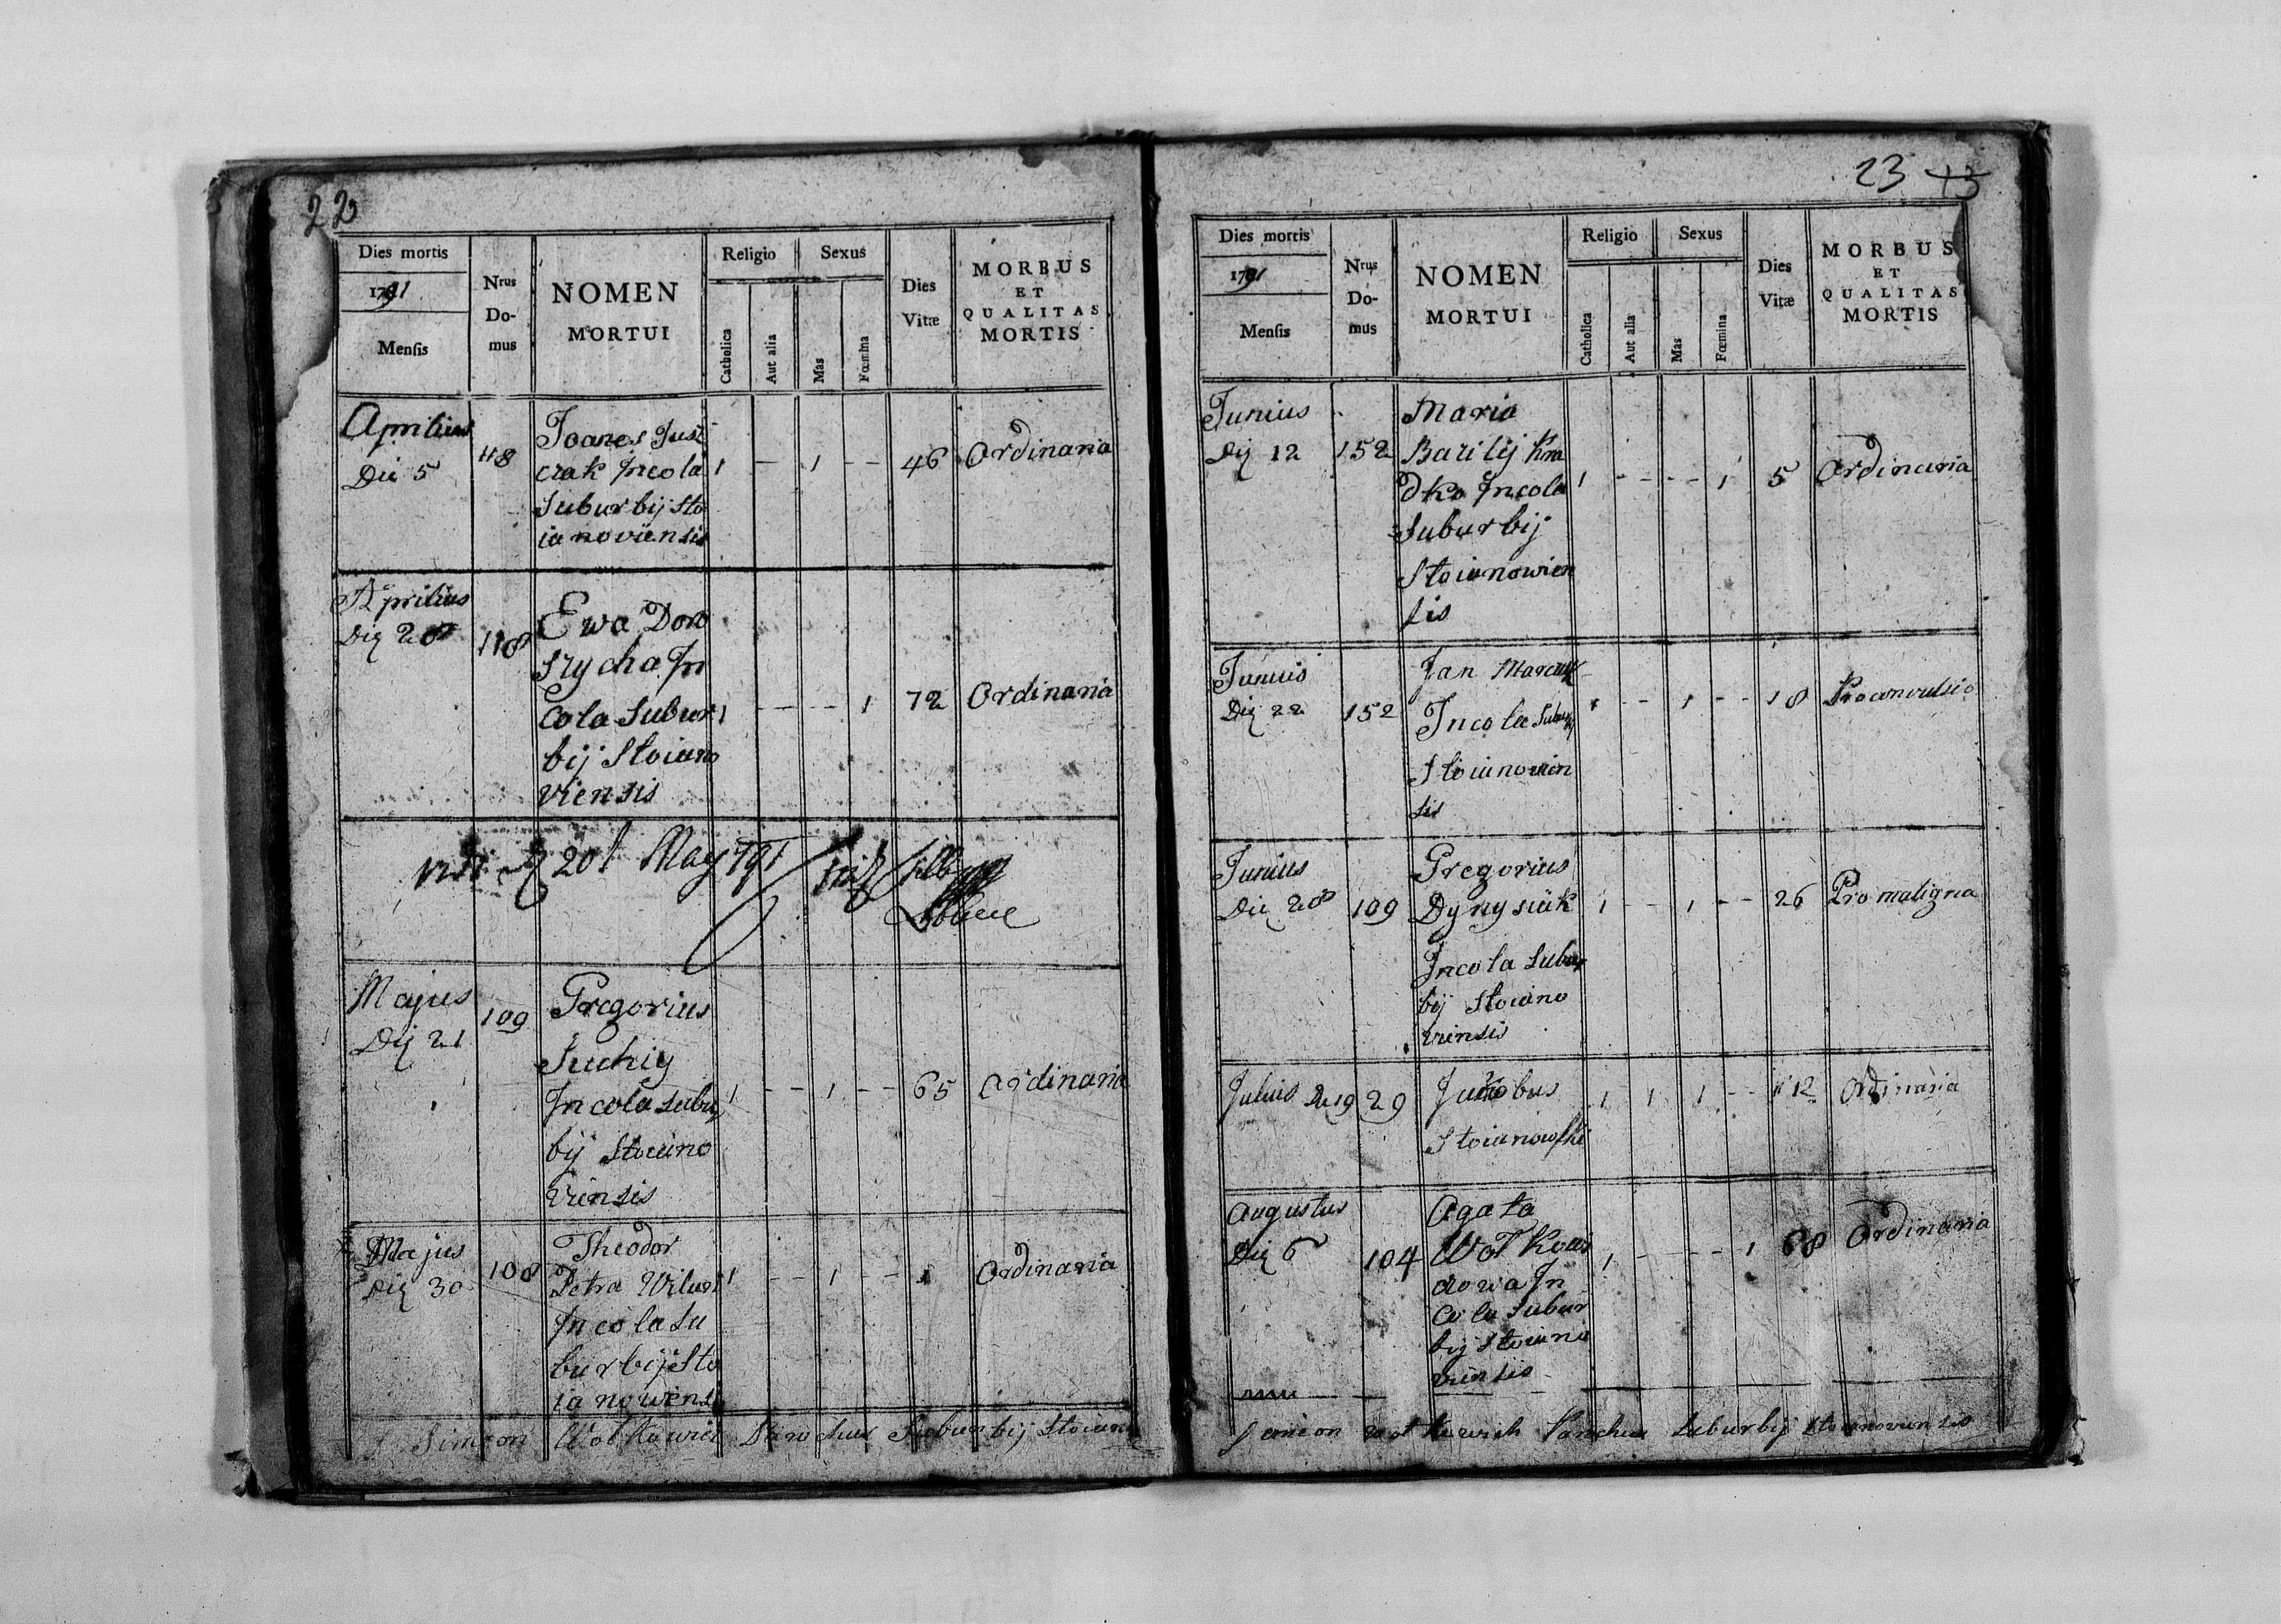 22
Dies mortis
1791
Mensis
Nrus
Do-
mus
NOMEN
MORTUI
Religio
Catholica
Aut alia
Sexus
Mas
Fœmina
Dies
Vitæ
MORBUS
ET
QUALITAS
MORTIS
Aprilius
Die 5
48
Joanes Jusz
czak Incola
Suburbij Sto
ianoviensis
1 — 1 — —
46
Ordinaria
Aprilius
Die 28
118
Ewa Doro
szycha In
cola Subur
bij Stoiano
viensis
1 — — — 1
72
Ordinaria
vidi 20t May 791
Majus
Dij 21
109
Gregorius
Suchiy
Incola Subur
bij Stoiano
viensis
1 — — 1 — —
65
ordinaria
Majus
Die 30
108
Theodor
Petra
Incola Su
burbij Sto
ianowiensi
1 — — 1 — —
1
Ordinaria
Simeon Wolkowicz Parochus Suburbij Stoiano
23 13
Dies mortis
1791
Mensis
Nrus
Do-
mus
NOMEN
MORTUI
Religio
Catholica
Aut alia
Sexus
Mas
Fœmina
Dies
Vitæ
MORBUS
ET
QUALITAS
MORTIS
Junius
Dij 12
152
Maria
Bazilij Kra
dko Incola
Suburbij
Stoianowien
sis
1 - - - - 1
5
Ordinaria
Junius
Die 22
152
Jan
Incola Suburbij
Stoianowien
sis
1 - - 1 - -
18
Junius
Die 28
109
Gregorius
Dynysiük
Incola Subur
bij Stoiano
viensis
1 - - 1 - -
26
Pro maligna
Julius Die 19
29
Jakobus
Stoianowski
1 1 1 - -
12
Ordinaria
Augustus
Die 6
104
Agata
Wolkow
In
cola Subur
bij Stoiano
viensis
1 - - - - 1
68
Ordinaria
Semion Parochus Suburbij Stoianoviensis